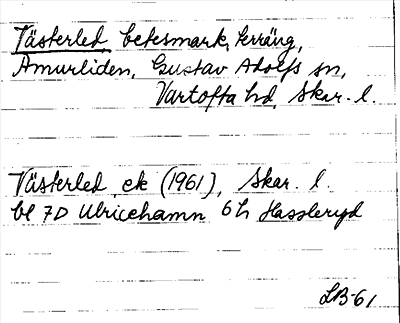 Västerled, betesmark, terräng,
Amurliden, Gustav Adolfs sn,
Vartofta hd, Skar. l.
Västerled ek (1961), Skar. l.
bl 7D Ulricehamn 6h Hassleryd
LB-61